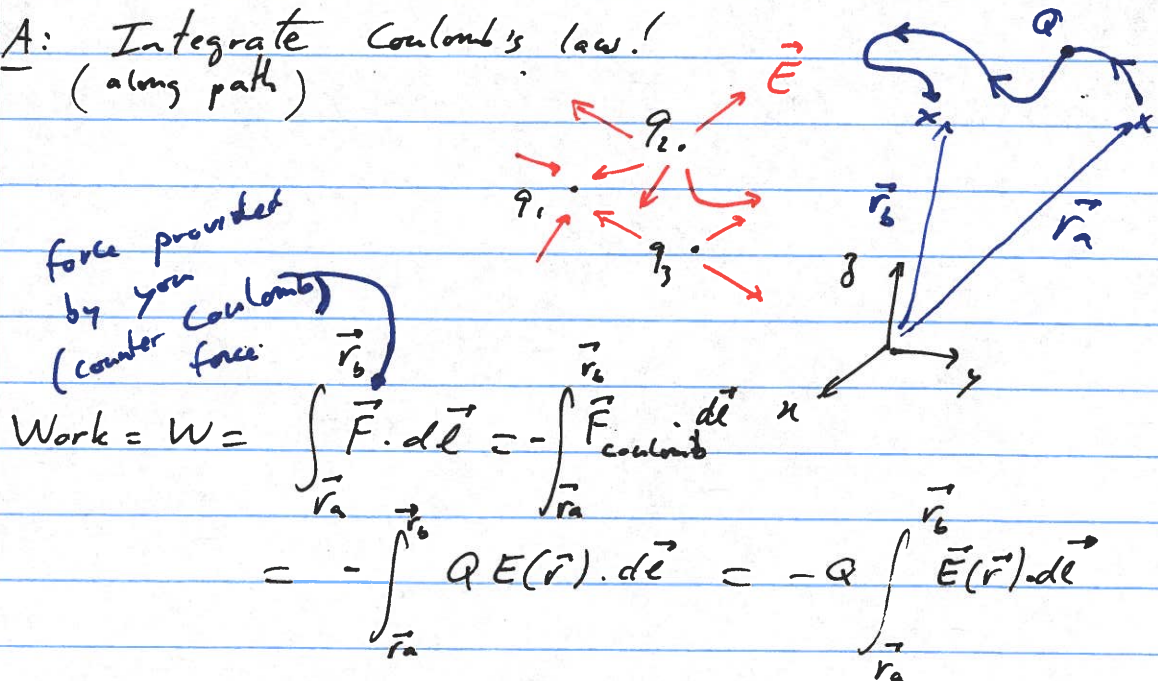 A: Integrate Coulomb's law!
(along path)
Q
E⃗
q₂
x x
q₁
r⃗_b r⃗_a
q₃
force provided
by you
(counter Coulomb)
force
z
y
x
Work = W = ∫_{r⃗_a}^{r⃗_b} F⃗ · dℓ⃗ = - ∫_{r⃗_a}^{r⃗_b} F⃗_coulomb · dℓ⃗
= - ∫_{r⃗_a}^{r⃗_b} Q E(r⃗) · dℓ⃗ = - Q ∫_{r⃗_a}^{r⃗_b} E⃗(r⃗) · dℓ⃗